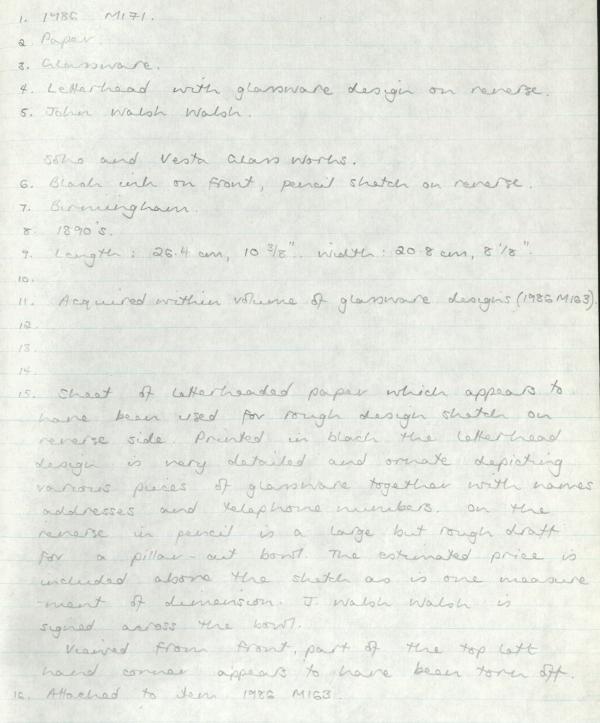 1. 1986 M171.
2 Paper.
3. Glassware.
4. Letterhead with glassware design on reverse.
5. John Walsh Walsh.
Soho and Vesta Glass Works.
6. Black ink on front, pencil sketch on reverse.
7. Birmingham.
8 1890's.
9. Length: 26.4 cm, 10 3/8". width: 20.8 cm, 8 1/8".
10.
11. Acquired within volume of glassware designs (1986 M163).
12.
13.
14.
15. Sheet of letterheaded paper which appears to
have been used for rough design sketch on
reverse side. Printed in black the letterhead
design is very detailed and ornate depicting
various pieces of glassware together with names
addresses and telephone numbers. On the
reverse in pencil is a large but rough draft
for a pillar-cut bowl. The estimated price is
included above the sketch as is one measure
-ment of dimension. J. Walsh Walsh is
signed across the bowl.
Viewed from front, part of the top left
hand corner appears to have been torn off.
16. Attached to item 1986 M163.